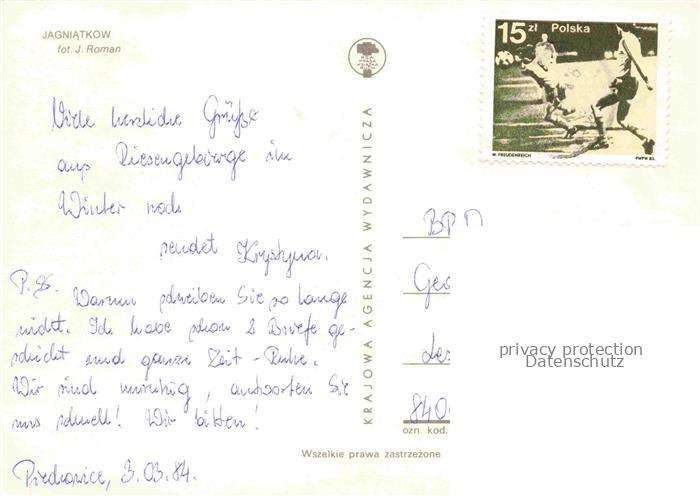 JAGNIĄTKOW
fot. J. Roman
RSW PRASA KSIĄŻKA RUCH
15 zł Polska
W. FREUDENREICH PWPW 83.
Viele herzliche Grüße
aus Riesengebirge im
Winter
sendet Krystyna.
P.S. Warum schreiben Sie so lange
nicht. Ich habe schon 2 Briefe ge-
schickt und ganze Zeit - Ruhe.
Wir sind unruhig, antworten Sie
uns schnell! Wir bitten!
3.03.84.
KRAJOWA AGENCJA WYDAWNICZA
BPM
Ges
840
ozn. kod.
Wszelkie prawa zastrzeżone
privacy protection
Datenschutz